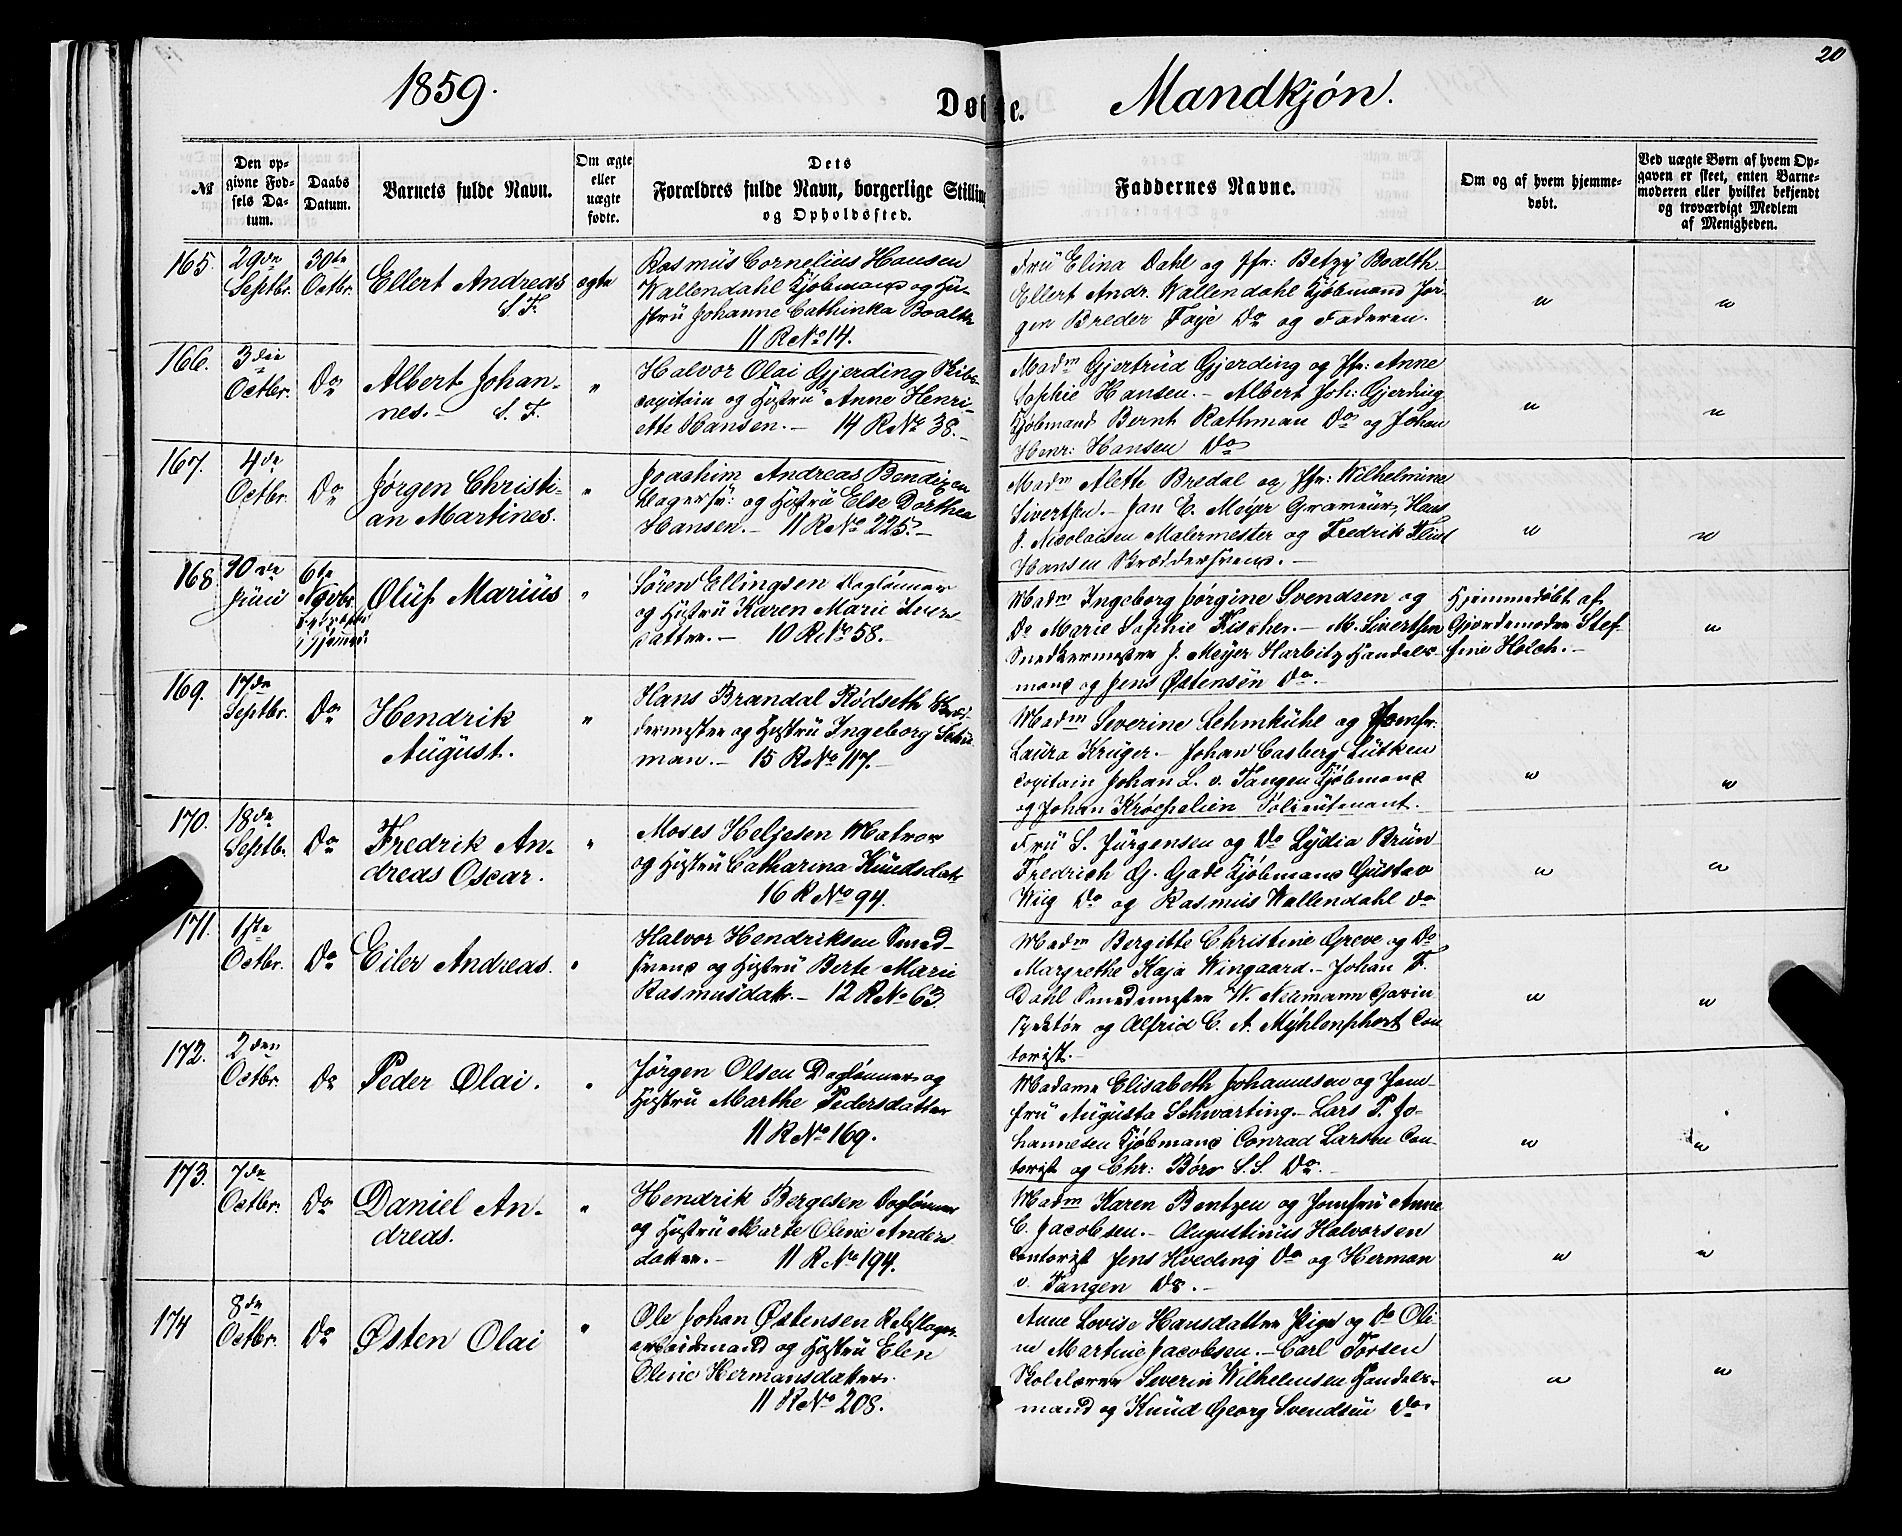 20
1859.
Døbte.
Mandkjøn.
№
Den opgivne Fødsels Datum.
Daabs Datum.
Barnets fulde Navn.
Om ægte eller uægte fødte.
Dets Forældres fulde Navn, borgerlige Stilling og Opholdssted.
Faddernes Navne.
Om og af hvem hjemmedøbt.
Ved uægte Børn af hvem Opgaven er skeet, enten Barnemoderen eller hvilket bekjendt og troværdigt Medlem af Menigheden.
165.
29de Septbr.
30te Octbr.
Ellert Andreas
S. F.
ægte
Rasmus Cornelius Hansen
Wallendahl Kjøbmand og Hu-
stru Johanne Cathinka Boalth
11 R No 14.
Fru Elina Dahl og Jfr: Betzy Boalth.
Ellert Andr. Wallendahl Kjøbmand Jør-
gen Breder Faye Do og Faderen.
"
"
166.
3die Octbr.
Do
Albert Johan-
nes.- S. F.
"
Halvor Olai Gjerding Skibs-
capitain og Hustru Anne Henri-
ette Hansen.- 14 R No 38.-
Madm Gjertrud Gjerding og Jfr: Anne
Sophie Hansen.- Albert Joh: Gjerding
Kjøbmand Bernt Rathman Do og Johan
Henr: Hansen Do
"
"
167.
4de Octbr.
Do
Jørgen Christi-
an Martines.
"
Joachim Andreas Bendixen
Bagersv: og Hustru Else Dorthea
Hansen.- 11 R No 225.-
Madm Alette Bredal og Jfr: Wilhelmine
Sivertsen.- Jan E. Meyer Graveur, Hans
J. Nicolaisen Malermester og Fredrik
Hansen Skræddersvend.-
"
"
168
10de Juni
6te Novbr.
Oluf Marius
"
Søren Ellingsen Daglønner
og Hustru Karen Marie Ivers-
datter.- 10 R No 58.-
Madm Ingeborg Jørgine Svendsen og
Do Marie Sophie Fischer.- M. Sivertsen
Snedkermester J. Meyer Harbitz Handels-
mand og Jens Østensen Do.-
Hjemmedøbt af
Gjordemoder Stef-
fine Holch.-
"
169.
17de Septbr.
Do
Hendrik
August.
"
Hans Brandal Rødseth Skræd-
dermester og Hustru Ingeborg
man.- 15 R No 117.-
Madm Severine Schmkuhl og Jomfr.
Laura Kruger.- Johan Casberg Lutken
Capitain Johan L. v. Tangen Kjøbmand
og Johan Krøepelien
"
"
170.
18de Septbr.
Do
Fredrik An-
dreas Oscar.
"
Moses Helgesen Matros
og Hustru Catharina Knudsdatr
16 R No 94.
Fru S. Jürgensen og Do Lydia Brun
Fredrich G. Gade Kjøbmand Gustav
Wiig Do og Rasmus Wallendahl Do
"
"
171.
1ste Octbr.
Do
Eiler Andreas.
"
Halvor Hendriksen Smed-
svend og Hustru Berte Marie
Rasmusdatr.- 12 R No 63
Madm Bergitte Christine Greve og Do
Margrethe Kaja Wingaard.- Johan F.
Dahl Smedemester W. Neumann Gasin-
spektør og Alfrid C. A. Myhlenphort Con-
torist.-
"
"
172.
2den Octbr.
Do
Peder Olai.
"
Jørgen Olsen Daglønner og
Hustru Marthe Pedersdatter
11 R No 169.
Madame Elisabeth Johannesen og Jom-
fru Augusta Schwarting.- Lars P. Jo-
hannesen Kjøbmand Conrad Larsen Con-
torist og Chr: Børs S.S. Do.-
"
"
173.
7de Octbr.
Do
Daniel An-
dreas.
"
Hendrik Bergesen Daglønner
og Hustru Marte Oline Anders-
datter.- 11 R No 194.
Madm Karen Bentzen og Jomfru Anne
C. Jacobsen.- Augustinus Halvorsen
Contorist Jens Hveding Do og Herman
v. Tangen Do.-
"
"
174
8de Octbr.
Do
Østen Olai
"
Ole Johan Østensen Rebslager-
arbeidsmand og Hustru Elen
Oline Hermansdatter.
11 R No 208.
Anne Lovise Hansdatter Pige og Do Oli-
ne Martine Jacobsen.- Carl Torsen
Skolelærer Severin Wilhelmsen Handels-
mand og Knud Georg Svendsen Do.
"
"